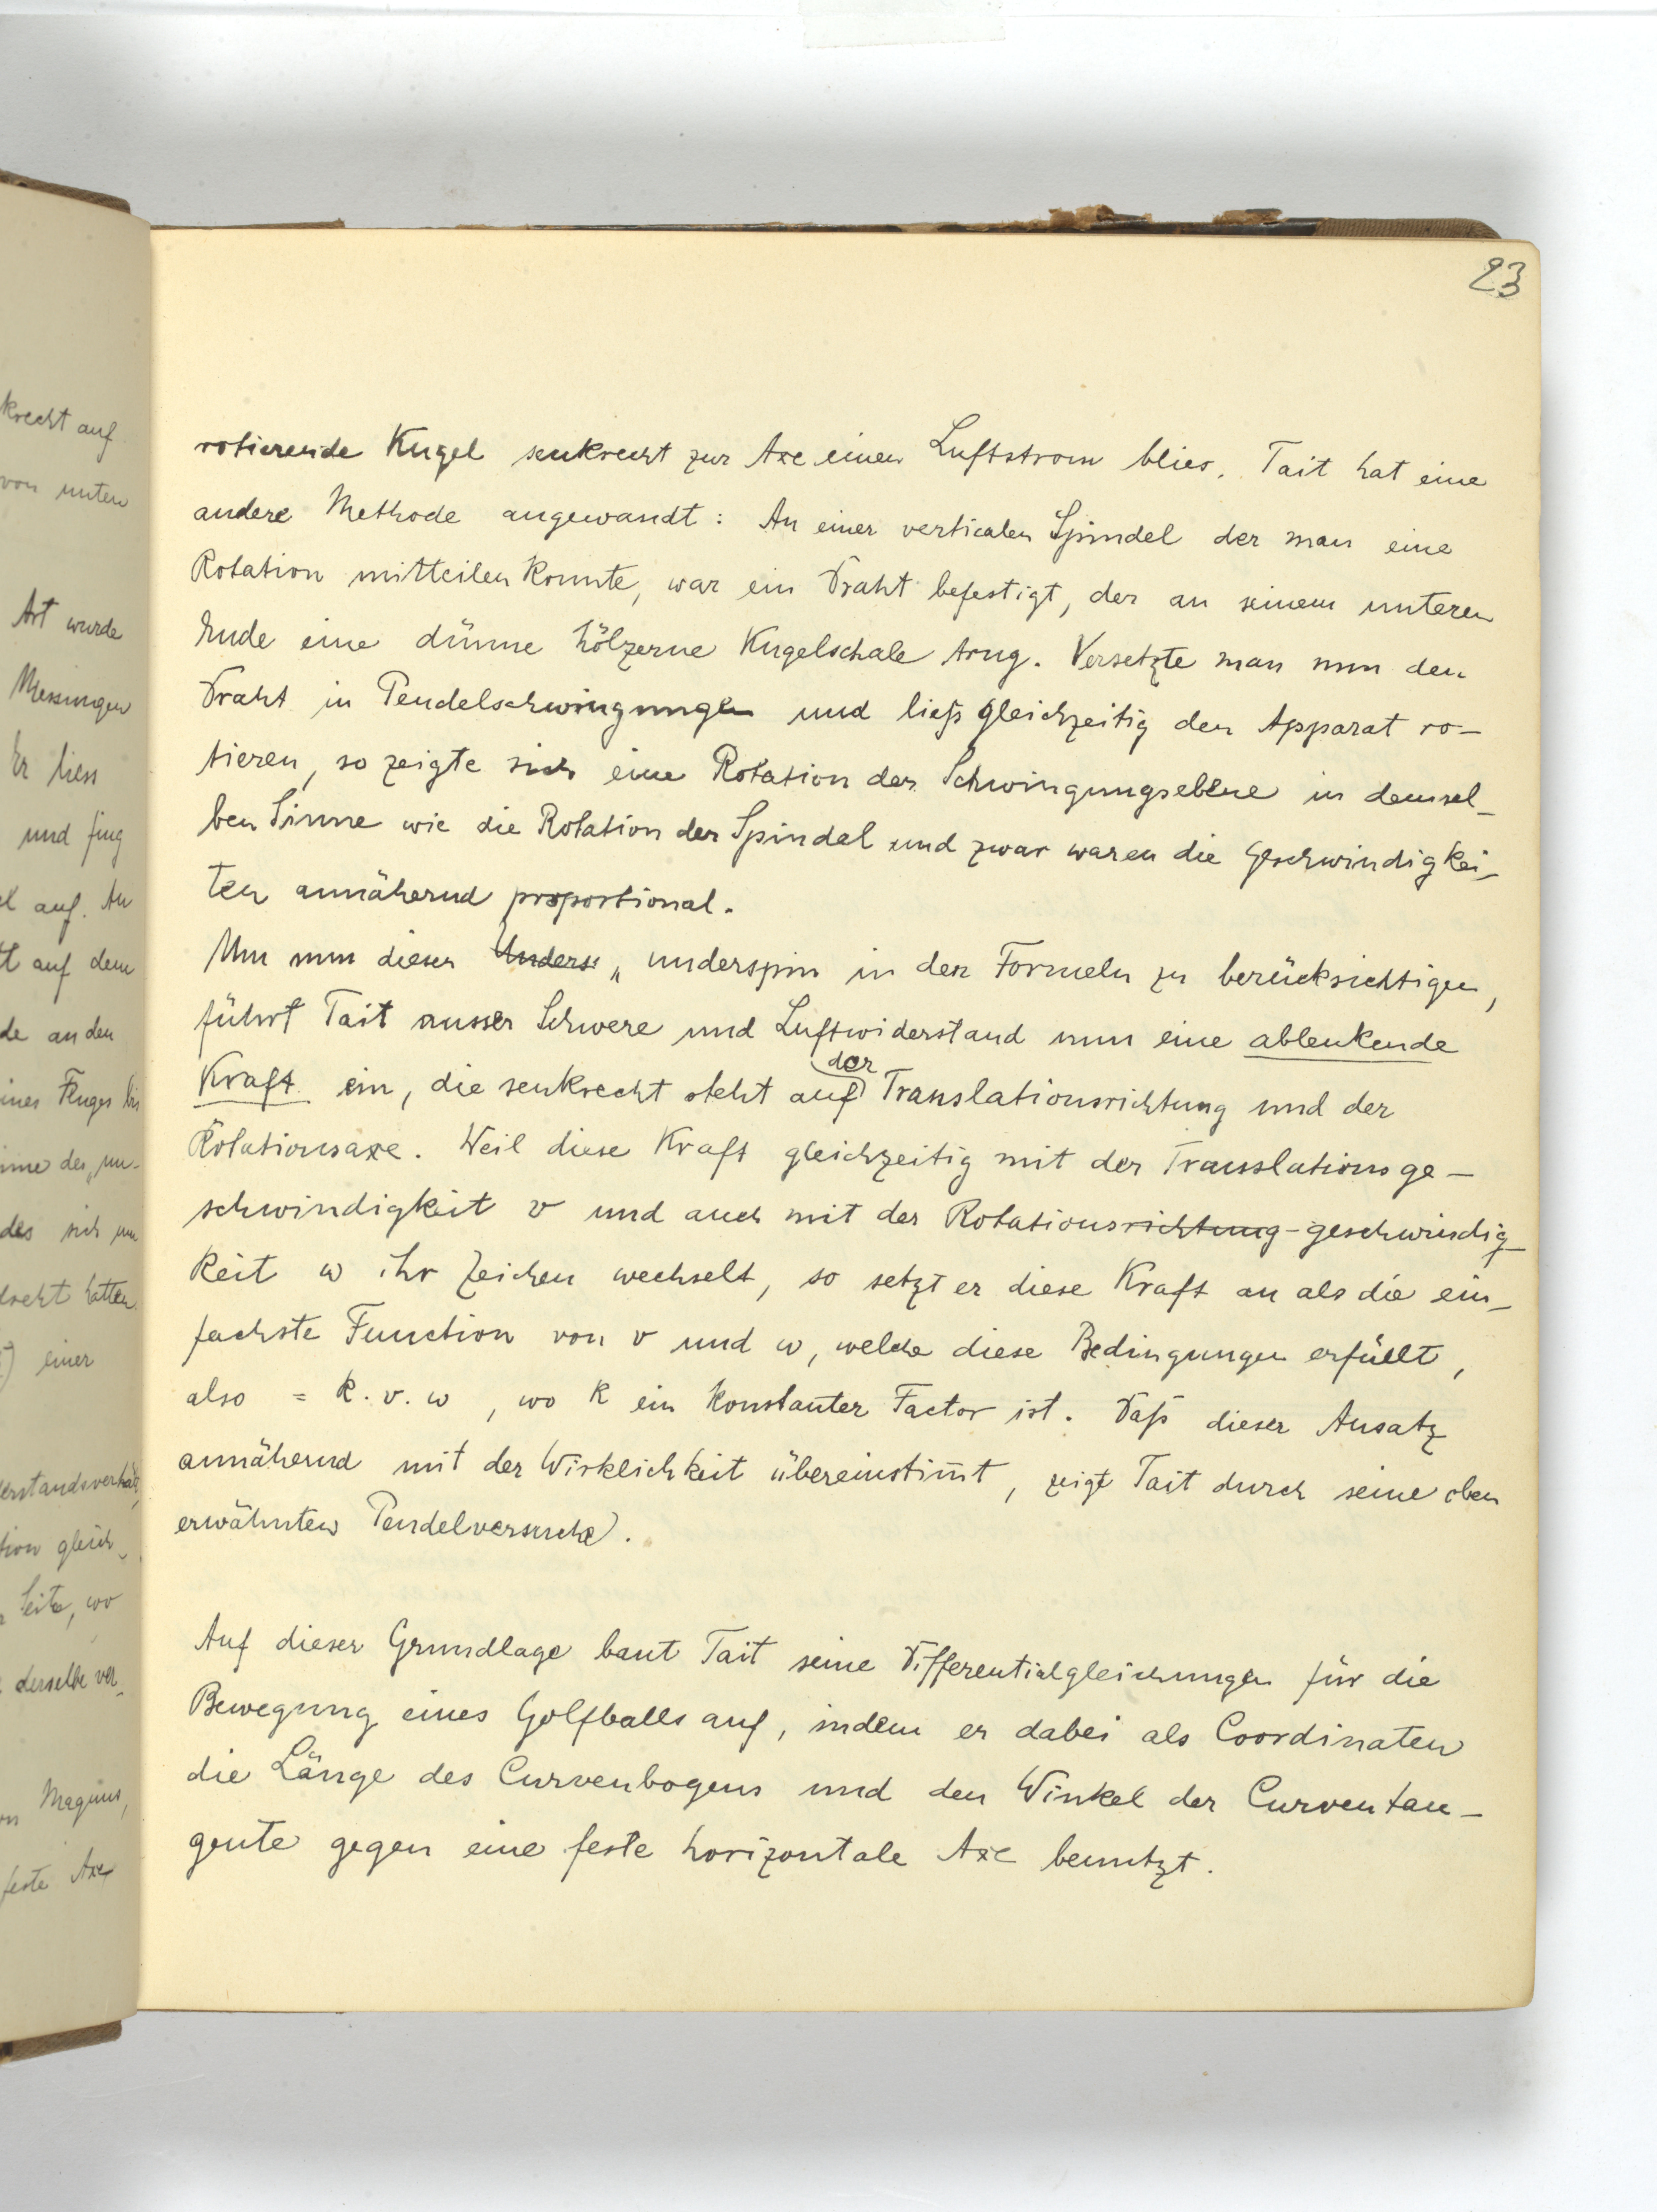 23
rotierende Kugel senkrecht zur Axe einen Luftstrom blies. Tait hat eine
andere Methode angewandt: An einer verticalen Spindel der man eine
Rotation mitteilen konnte, war ein Draht befestigt, der an seinem unteren
Ende eine dünne hölzerne Kugelschale trug. Versetzte man nun den
Draht in Pendelschwingungen und ließ gleichzeitig den Apparat ro-
tieren, so zeigte sich eine Rotation der Schwingungsebene in demsel-
ben Sinne wie die Rotation der Spindel und zwar waren die Geschwindigkei-
ten annähernd proportional.
Um nun diesen Unders „underspin in den Formeln zu berücksichtigen,
führt Tait ausser Schwere und Luftwiderstand nun eine ablenkende
Kraft ein, die senkrecht steht auf der Translationsrichtung und der
Rotationsaxe. Weil diese Kraft gleichzeitig mit der Translationsge-
schwindigkeit v und auch mit der Rotationsrichtung-geschwindig-
keit w ihr Zeichen wechselt, so setzt er diese Kraft an als die ein-
fachste Function von v und w, welche diese Bedingungen erfüllt,
also = k. v. w, wo k ein konstanter Factor ist. Daß dieser Ansatz
annähernd mit der Wirklichkeit übereinstim̅t, zeigt Tait durch seine oben
erwähnten Pendelversuche.
Auf dieser Grundlage baut Tait seine Differentialgleichungen für die
Bewegung eines Golfballs auf, indem er dabei als Coordinaten
die Länge des Curvenbogens und den Winkel der Curventan-
gente gegen eine feste horizontale Axe benutzt.
krecht auf
von unten
Art wurde
Messungen
Er liess
und fing
auf. An
t auf dem
de an den
ines Fluges bis
des „un-
des sich um
hatten
einer
erstandsverhält
tion gleich-
Seite, wo
derselbe ver-
Magnus,
feste Axe